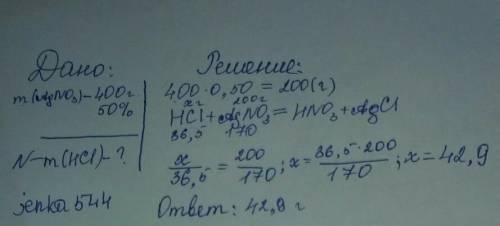 Дано:
m(AgNO3)-400г
50%
N-m(HCl)-?
jenka544
Решение:
400·0,50=200(г)
xг 200г
HCl+AgNO3=HNO3+AgCl
36,5 170
x/36,5=200/170; x=36,5·200/170; x=42,9
Ответ: 42,9 г